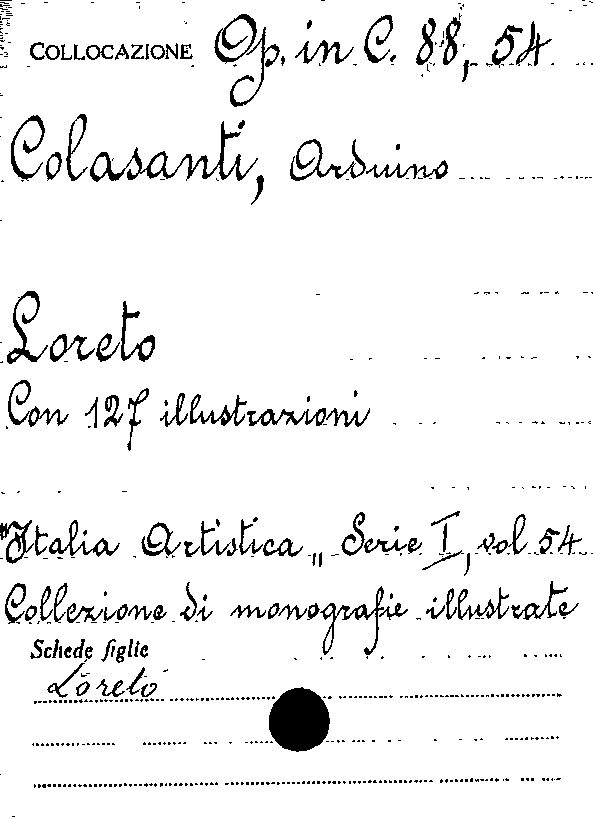 COLLOCAZIONE Op. in C. 88, 54
Colasanti, Arduino
Loreto
Con 127 illustrazioni
"Italia Artistica„ Serie I, vol 54
Collezione di monografie illustrate
Schede figlie
Loreto